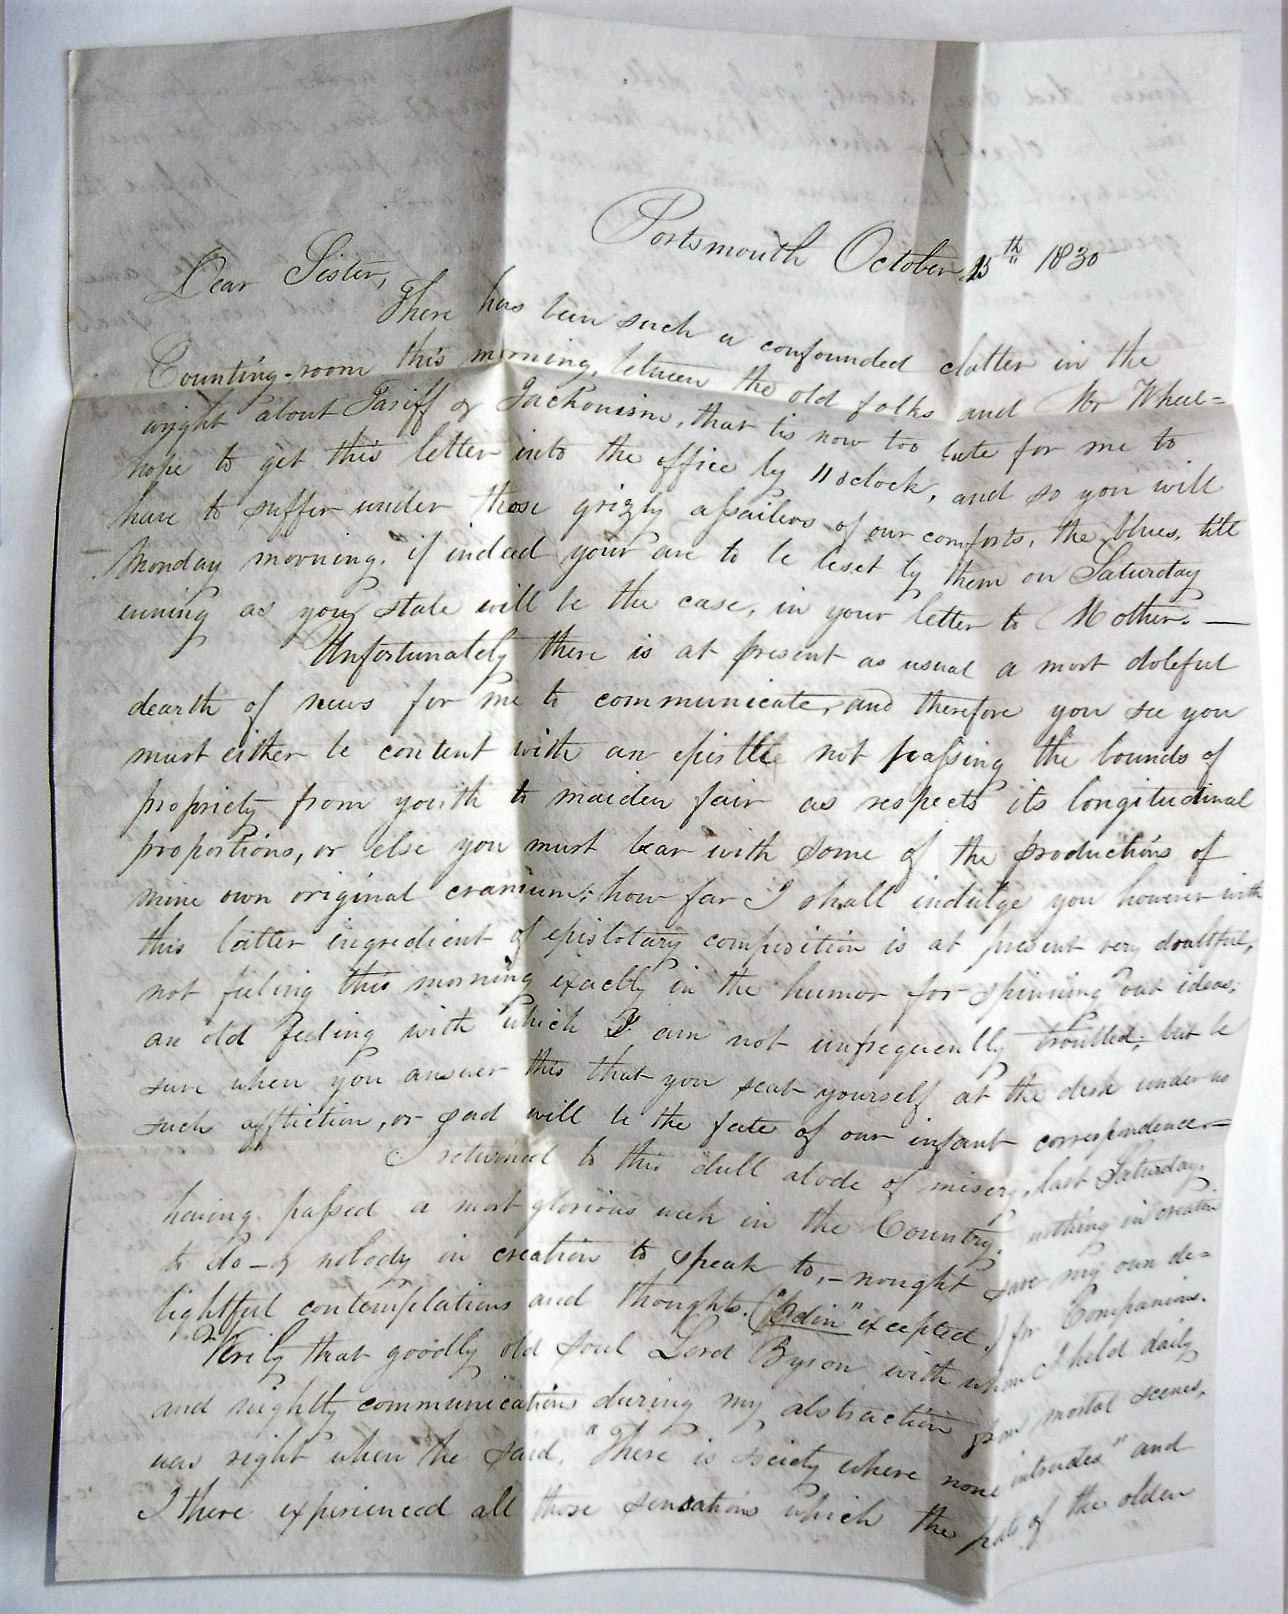 Portsmouth October 15th 1830
Dear Sister,
There has been such a confounded clatter in the
Counting-room this morning, between the old folks and Mr Wheel=
wright about Tariff & Jacksonism, that tis now too late for me to
hope to get this letter into the office by 11 oclock, and so you will
have to suffer under those grizly assailers of our comforts, the blues, till
Monday morning, if indeed your are to be beset by them on Saturday
evening as you state will be the case, in your letter to Mother. —
Unfortunately there is at present as usual a most doleful
dearth of news for me to communicate, and therefore you see you
must either be content with an epistle not passing the bounds of
propriety from youth to maiden fair as respects its longitudinal
proportions, or else you must bear with some of the productions of
mine own original cranium; how far I shall indulge you however with
this latter ingredient of epistolary composition is at present very doubtful,
not feeling this morning exactly in the humor for spinning out ideas;
an old feeling with which I am not unfrequently troubled; but be
sure when you answer this that you seat yourself at the desk under no
such affliction, or sad will be the fate of our infant correspondence—
I returned to this dull abode of misery, last Saturday,
having passed a most glorious week in the Country, nothing in creation
to do — & nobody in creation to speak to, — nought save my own de=
lightful contemplations and thoughts. ("Edin" excepted) for Companions.
Verily that goodly old soul Lord Byron with whom I held daily
and nightly communications during my abstraction from mortal scenes,
was right when he said, "There is society where none intrudes" and
I there experienced all those sensations which the of the olden